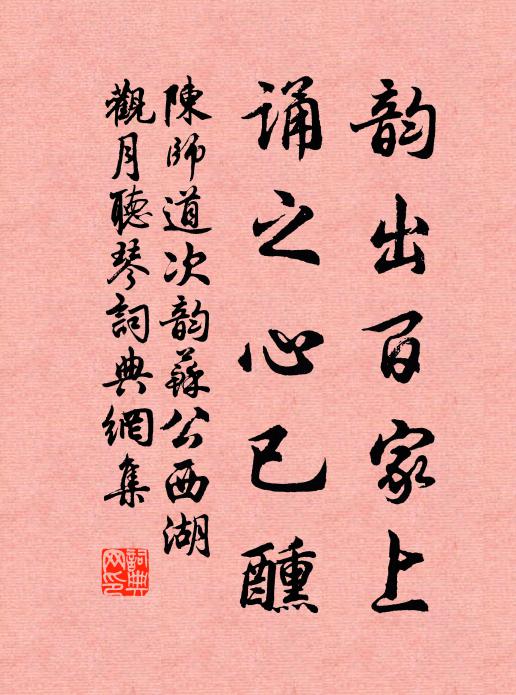 韵出百家上
誦之心已醺
陳師道次韵蘇公西湖
觀月聽琴詞典網集
詞典網印